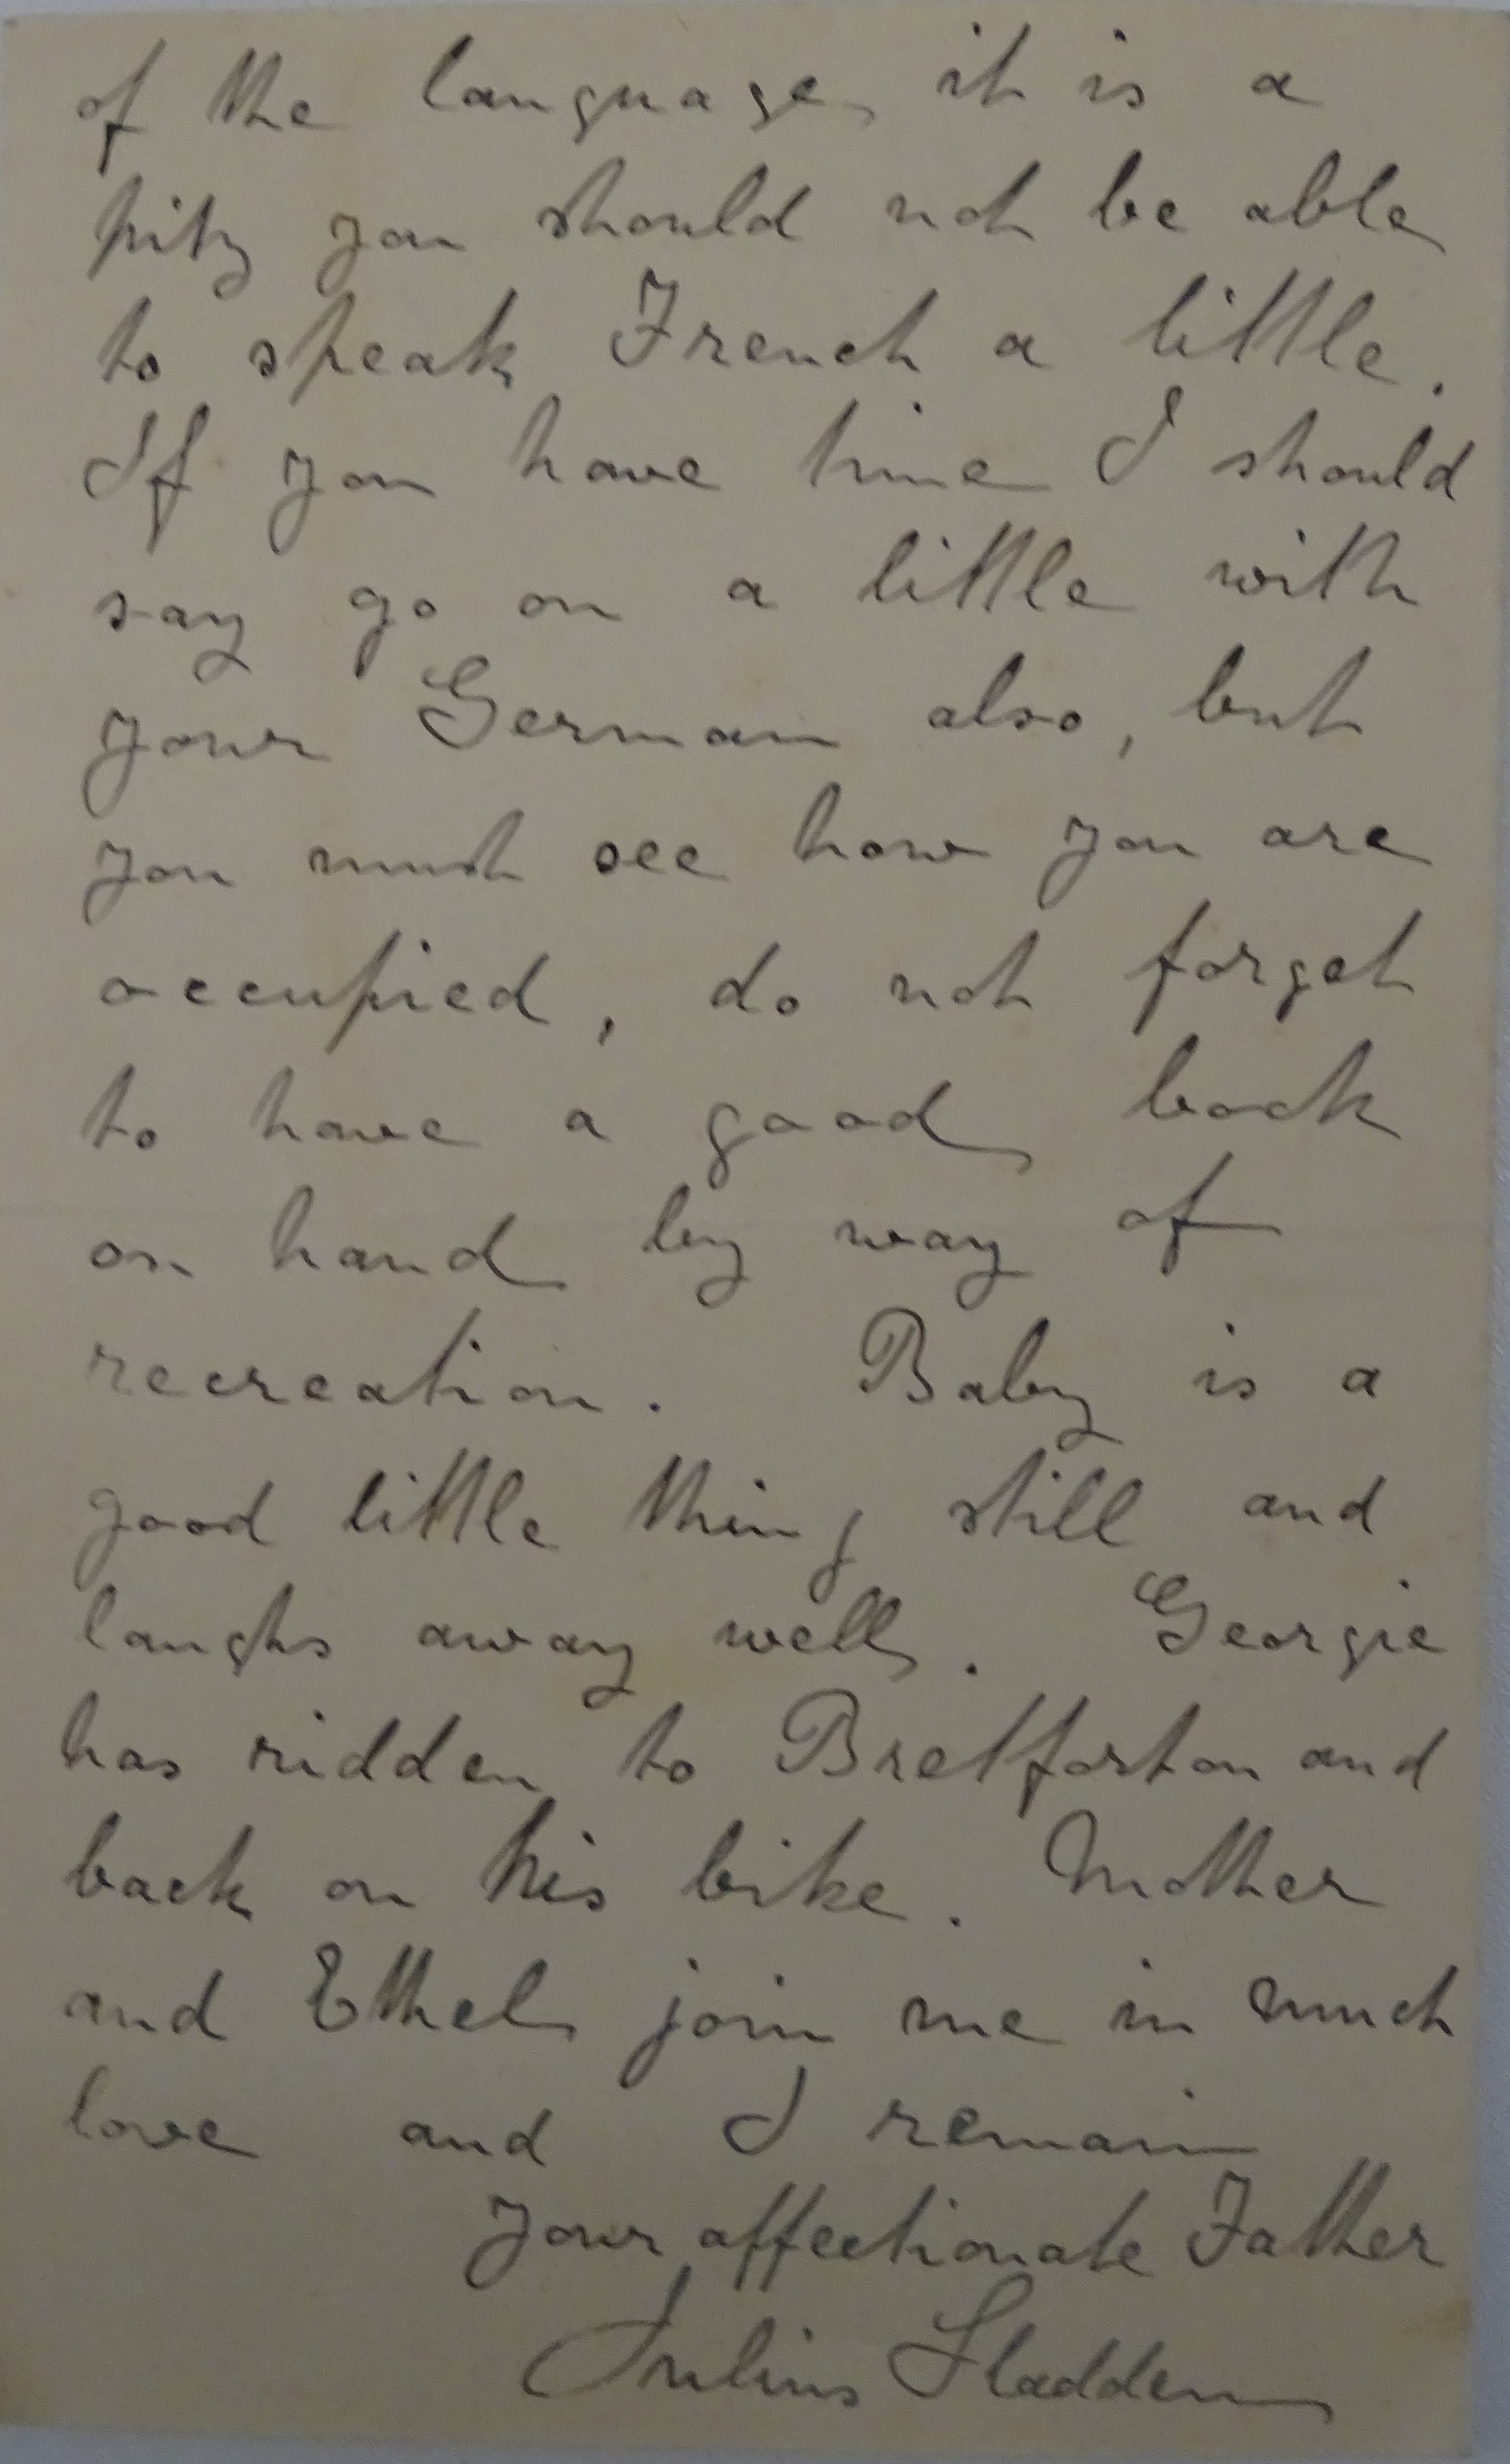 of the language, it is a
pity you should not be able
to speak French a little.
If you have time I should
say go on a little with
your German also, but
you must see how you are
occupied, do not forget
to have a good book
on hand by way of
recreation. Baby is a
good little thing still and
laughs away well. Georgie
has ridden to Bretforton and
back on his bike. Mother
and Ethel join me in much
love and I remain
Your affectionate Father
Julius Sladden